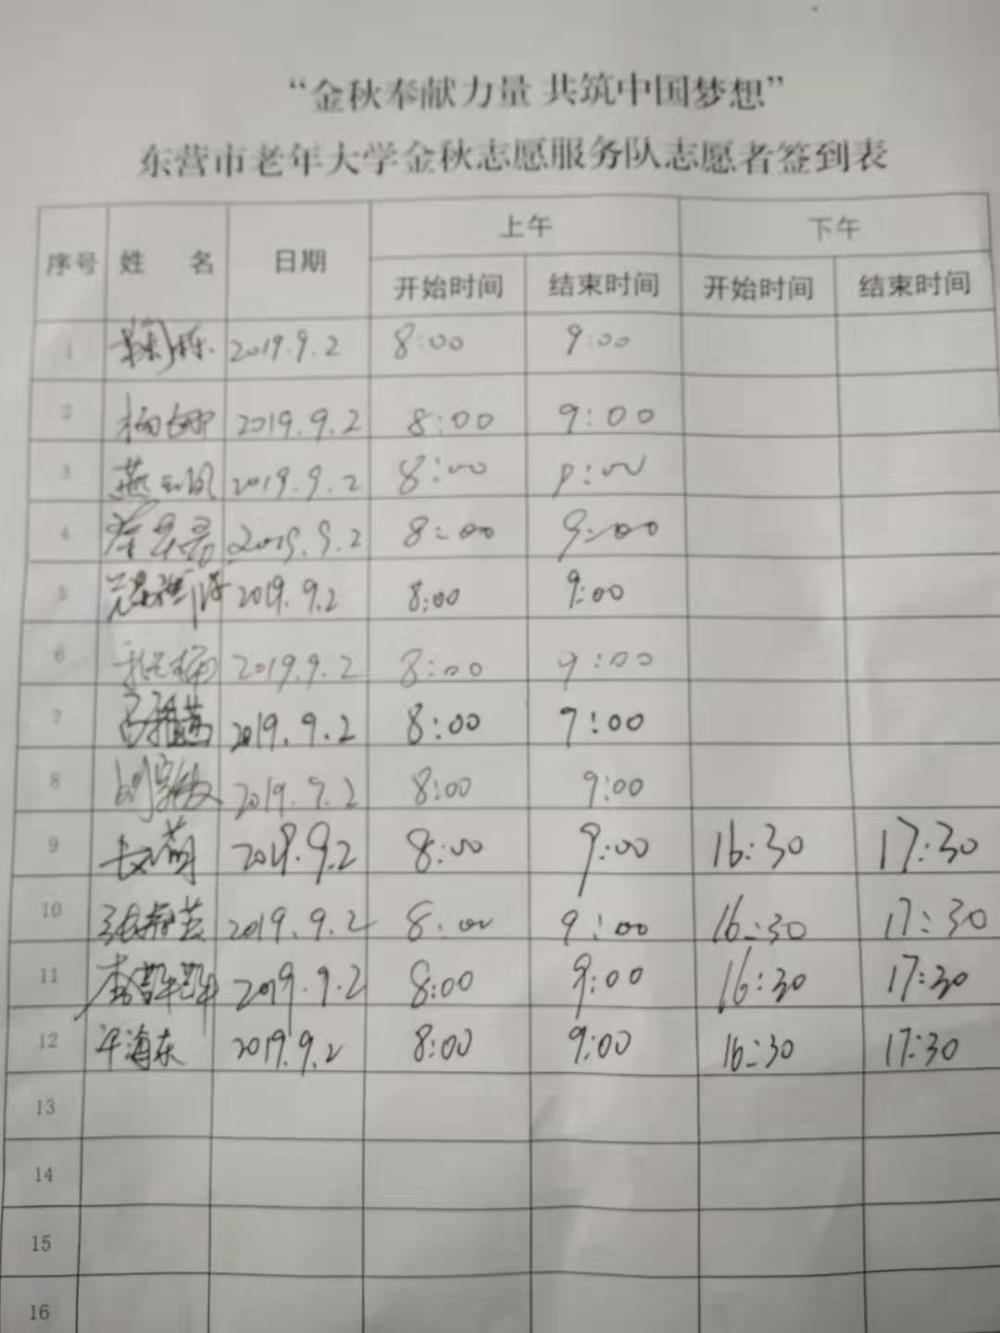 “金秋奉献力量 共筑中国梦想”
东营市老年大学金秋志愿服务队志愿者签到表
序号 姓 名 日期 上午 下午
开始时间 结束时间 开始时间 结束时间
1 2019.9.2 8:00 9:00
2 2019.9.2 8:00 9:00
3 2019.9.2 8:00 9:00
4 2019.9.2 8:00 9:00
5 2019.9.2 8:00 9:00
6 2019.9.2 8:00 9:00
7 2019.9.2 8:00 9:00
8 2019.9.2 8:00 9:00
9 2019.9.2 8:00 9:00 16:30 17:30
10 2019.9.2 8:00 9:00 16:30 17:30
11 2019.9.2 8:00 9:00 16:30 17:30
12 海东 2019.9.2 8:00 9:00 16:30 17:30
13
14
15
16